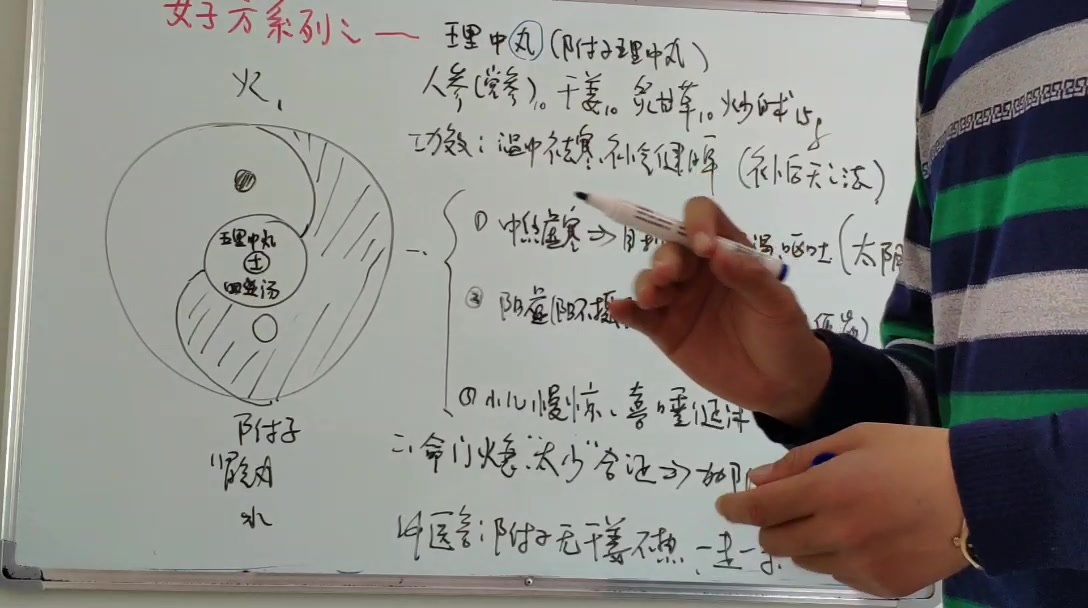 女子方系列之一
理中丸(附子理中丸)
人参(党参)10 干姜10 炙甘草10 炒白术15g
功效:温中祛寒、补气健脾(补后天之法)
一、
① 中焦虚寒→ 呕吐(太阴
② 阳虚(阳不摄
③ 小儿慢惊、喜唾涎沫
二、命门火衰"太少"合证→加附
附子无干姜不热、一走一守
火
理中丸
土
四逆汤
附子
肾
水